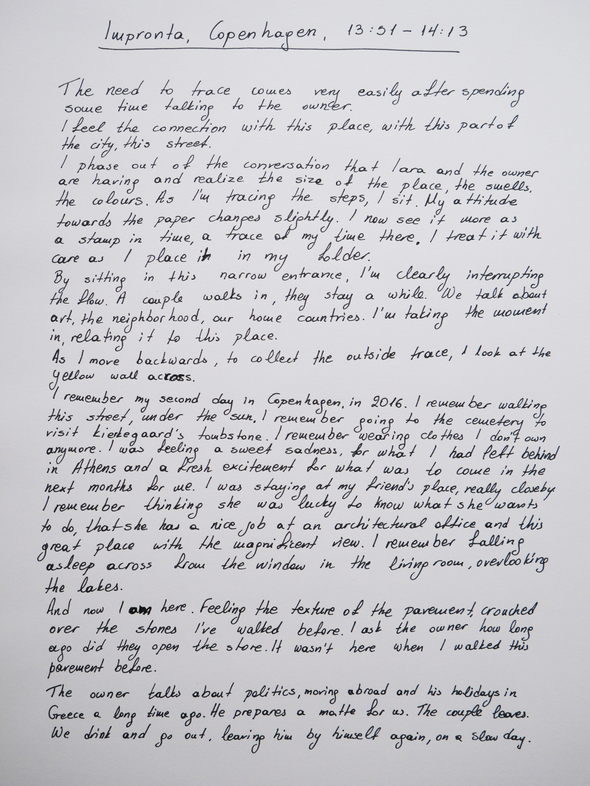 Impronta, Copenhagen, 13:51 – 14:13
The need to trace comes very easily after spending
some time talking to the owner.
I feel the connection with this place, with this part of
the city, this street.
I phase out of the conversation that Iara and the owner
are having and realize the size of the place, the smells,
the colours. As I'm tracing the steps, I sit. My attitude
towards the paper changes slightly. I now see it more as
a stamp in time, a trace of my time there. I treat it with
care as I place it in my folder.
By sitting in this narrow entrance, I'm clearly interrupting
the flow. A couple walks in, they stay a while. We talk about
art, the neighborhood, our home countries. I'm taking the moment
in, relating it to this place.
As I move backwards, to collect the outside trace, I look at the
yellow wall across.
I remember my second day in Copenhagen, in 2016. I remember walking
this street, under the sun. I remember going to the cemetery to
visit Kierkegaard's tombstone. I remember wearing clothes I don't own
anymore. I was feeling a sweet sadness, for what I had left behind
in Athens and a fresh excitement for what was to come in the
next months for me. I was staying at my friend's place, really closeby.
I remember thinking she was lucky to know what she wants
to do, that she has a nice job at an architectural office and this
great place with the magnificent view. I remember falling
asleep across from the window in the living room, overlooking
the lakes.
And now I am here. Feeling the texture of the pavement, crouched
over the stones I've walked before. I ask the owner how long
ago did they open the store. It wasn't here when I walked this
pavement before.
The owner talks about politics, moving abroad and his holidays in
Greece a long time ago. He prepares a matte for us. The couple leaves.
We drink and go out, leaving him by himself again, on a slow day.